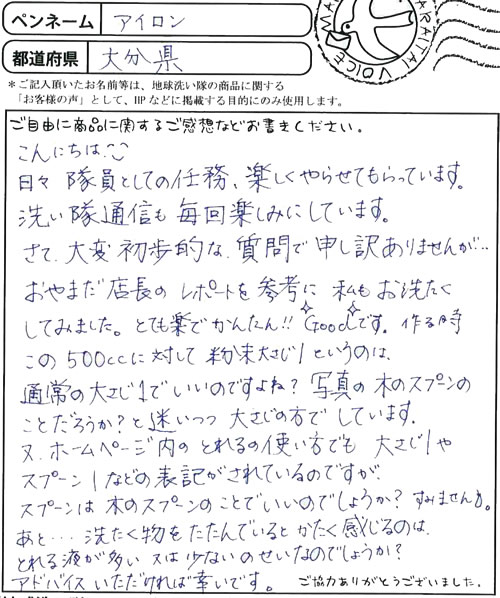 ペンネーム アイロン
都道府県 大分県
*ご記入頂いたお名前等は、地球洗い隊の商品に関する
「お客様の声」として、HPなどに掲載する目的にのみ使用します。
ARAITAI VOICE
ご自由に商品に関するご感想などお書きください。
こんにちは
日々 隊員としての任務、楽しくやらせてもらっています。
洗い隊通信も 毎回楽しみにしています。
さて、大変 初歩的な 質問で申し訳ありませんが‥
おやまだ店長の レポートを参考に 私も お洗たく
してみました。とても楽でかんたん!! Goodです。作る時
この500ccに対して 粉末大さじ1というのは、
通常の大さじ1でいいのですよね? 写真の 木のスプーンの
ことだろうか?と 迷いつつ 大さじの方でしています。
又、ホームページ内の とれるの使い方でも 大さじ1や
スプーン1などの表記がされているのですが、
スプーンは 木のスプーンのことでいいのでしょうか? すみません。
あと… 洗たく物をたたんでいると かたく感じるのは、
とれる液が多い 又は少ないのせいなのでしょうか?
アドバイスいただければ幸いです。 ご協力ありがとうございました。